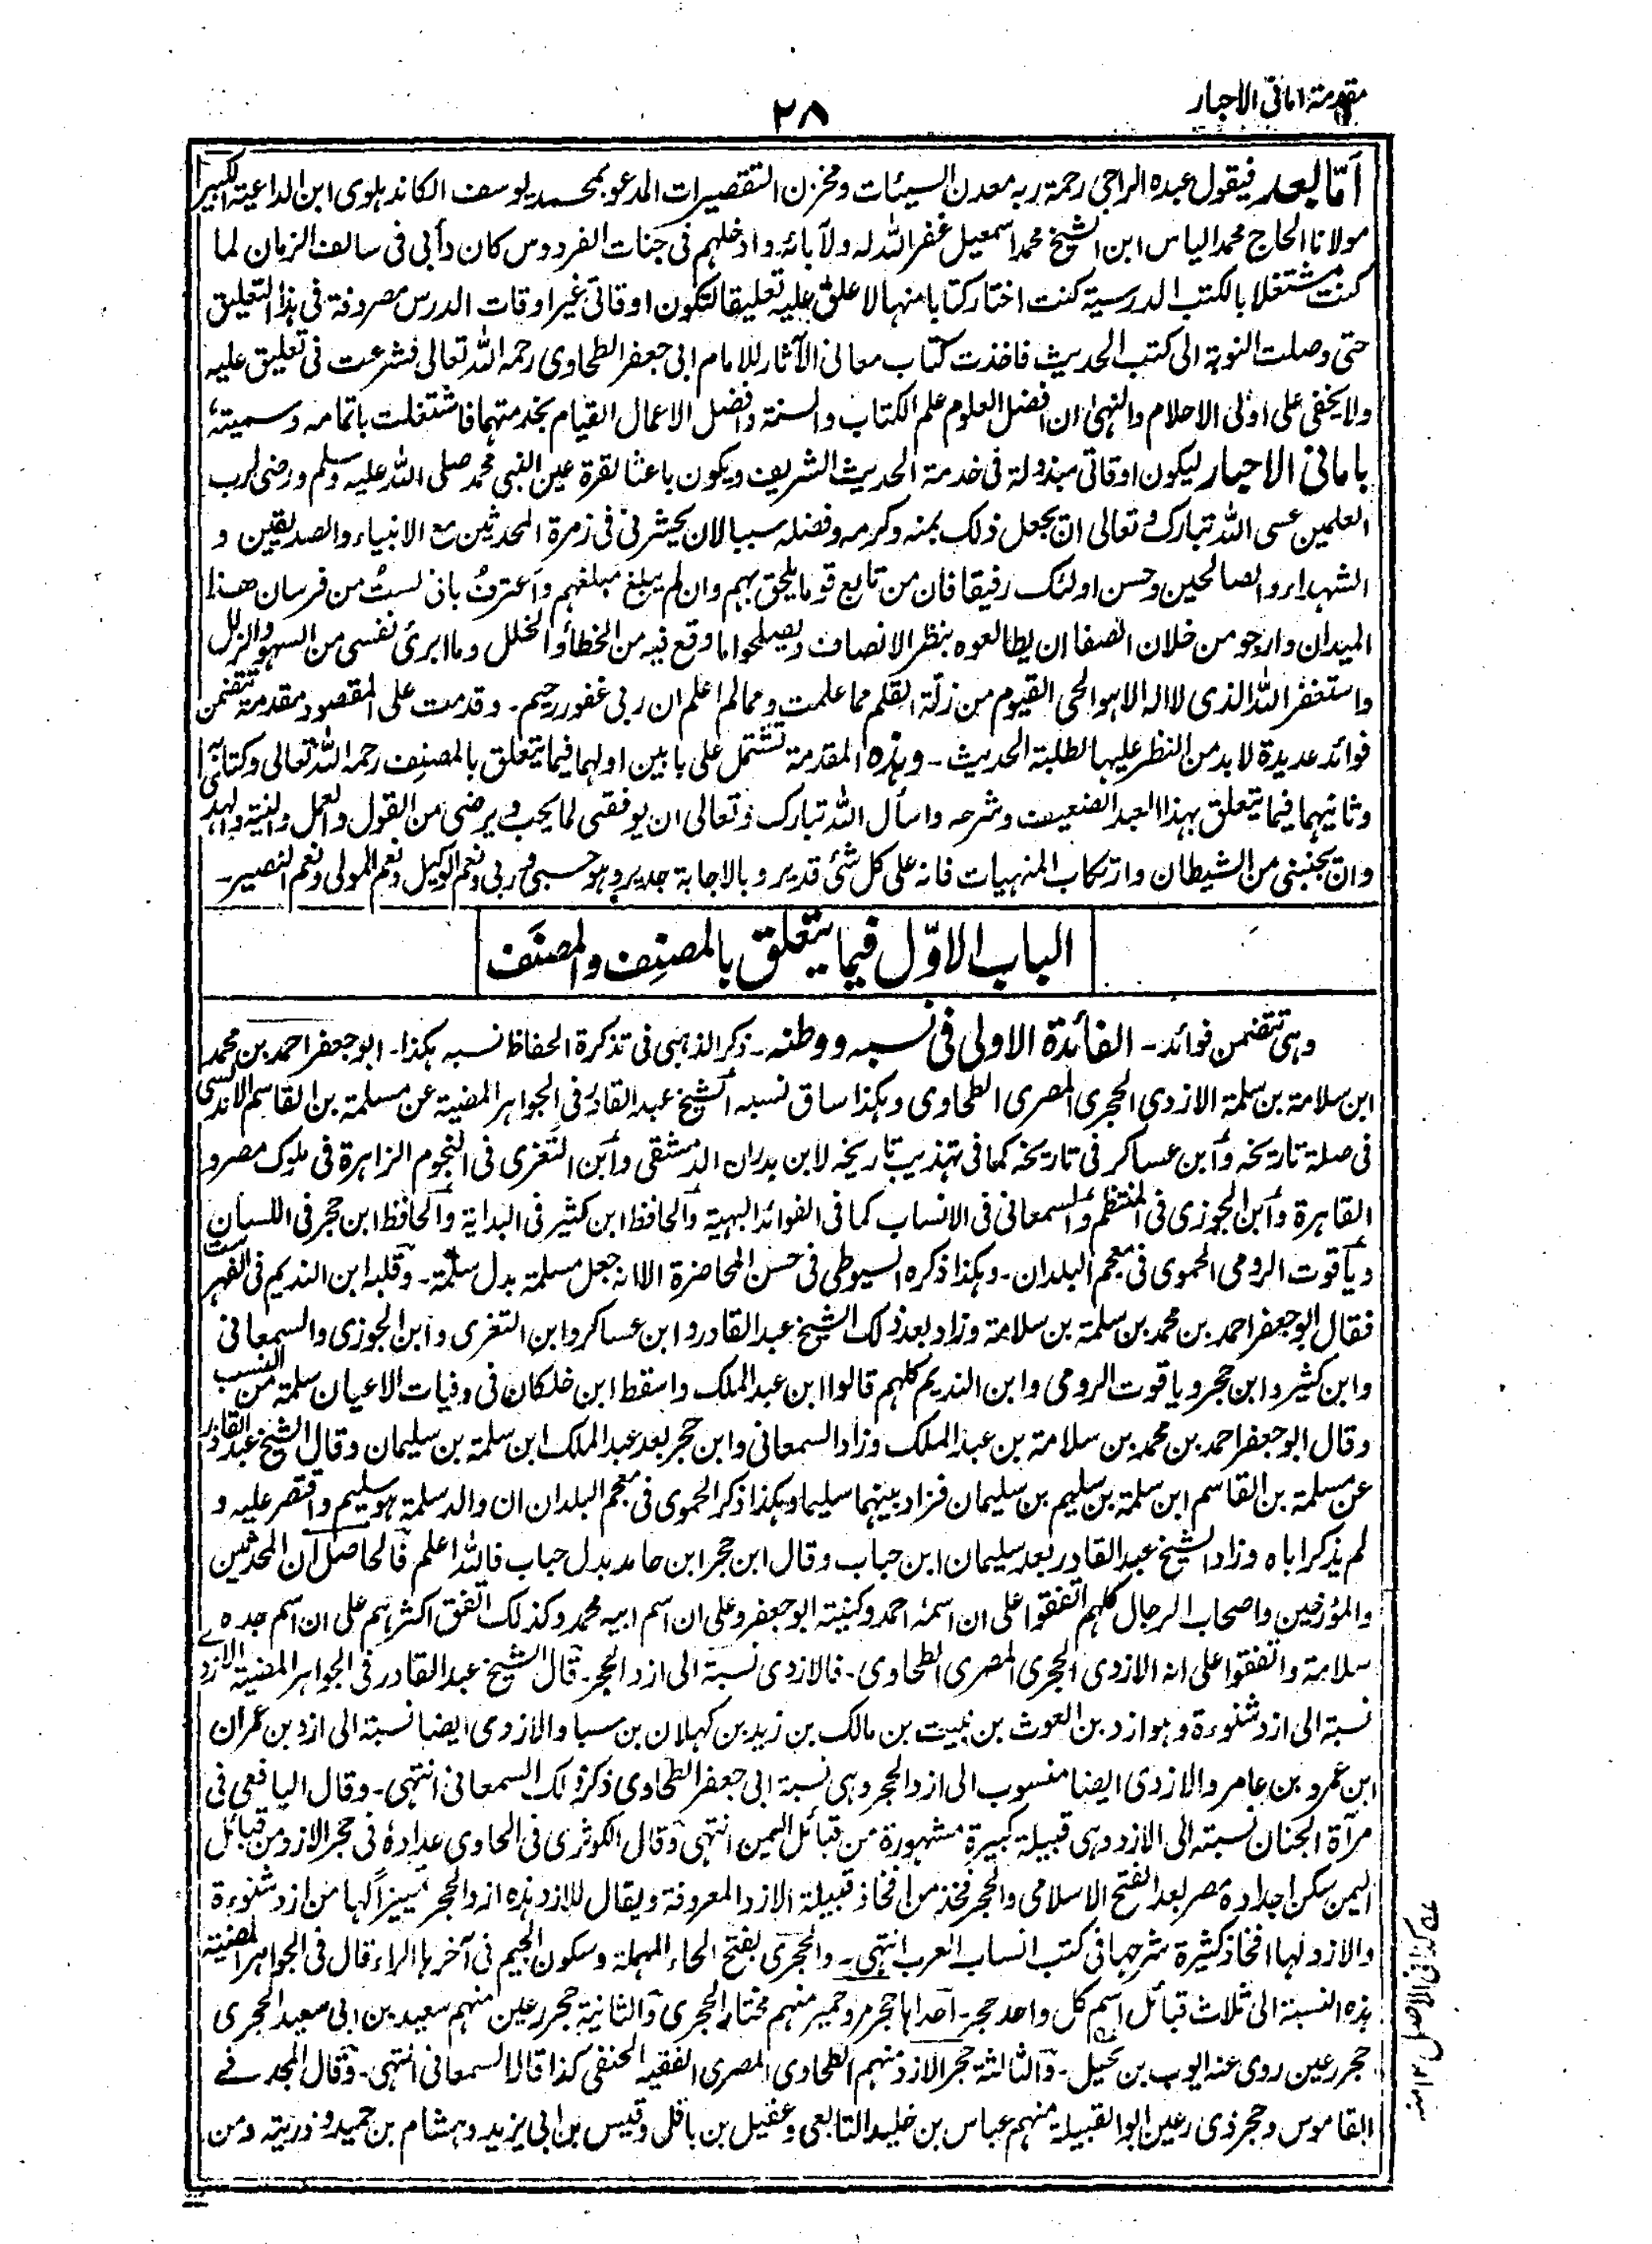 مقدمة امانی الاحبار
٢٨
أمّا بعد فیقول عبده الراجی رحمة ربه معدن السیئات ومخزن التقصیرات المدعو بمحمد یوسف الکاندهلوی ابن الداعیة الکبیر
مولانا الحاج محمد الیاس ابن الشیخ محمد اسمعیل غفر الله له ولآبائه وادخلهم فی جنات الفردوس کان دأبی فی سالف الزمان لما
کنت مشتغلا بالکتب الدرسیة کنت اختار کتابا منها لاعلق علیه تعلیقا لتکون اوقاتی غیر اوقات الدرس مصروفة فی هذا التعلیق
حتی وصلت النوبة الی کتب الحدیث فاخذت کتاب معانی الآثار للامام ابی جعفر الطحاوی رحمه الله تعالی فشرعت فی تعلیق علیه
ولا یخفی علی اولی الاحلام والنهی ان افضل العلوم علم الکتاب والسنة وافضل الاعمال القیام بخدمتهما فاشتغلت باتمامه وسمیته
بامانی الاحبار لیکون اوقاتی مبذولة فی خدمة الحدیث الشریف ویکون باعثا لقرة عین النبی محمد صلی الله علیه وسلم ورضی لرب
العلمین عسی الله تبارک وتعالی ان یجعل ذلک بمنه وکرمه وفضله سببا لان یحشرنی فی زمرة المحدثین مع الانبیاء والصدیقین و
الشهداء والصالحین وحسن اولئک رفیقا فان من تابع قوما یلحق بهم وان لم یبلغ مبلغهم وأعترف بانی لست من فرسان هذا
المیدان وارجو من خلان الصفا ان یطالعوه بنظر الانصاف ویصلحوا ما وقع فیه من الخطأ والخلل وما ابرئ نفسی من السهو والزلل
واستغفر الله الذی لا اله الا هو الحی القیوم من زلّة القلم مما علمت ومما لم اعلم ان ربی غفور رحیم۔ وقدمت علی المقصود مقدمة تتضمن
فوائد عدیدة لابد من النظر علیها لطلبة الحدیث۔ وهذه المقدمة تشتمل علی بابین اولهما فیما یتعلق بالمصنف رحمه الله تعالی وکتابه
وثانیهما فیما یتعلق بهذا العبد الضعیف وشرحه واسأل الله تبارک وتعالی ان یوفقنی لما یحب ویرضی من القول والعمل والنیة والهدی
وان یجنبنی من الشیطان وارتکاب المنهیات فانه علی کل شئ قدیر وبالاجابة جدیر وهو حسبی ربی ونعم الوکیل ونعم المولی ونعم النصیر۔
الباب الاوّل فیما یتعلق بالمصنِف والمصنَف
وهی تتضمن فوائد۔ الفائدة الاولی فی نسبه ووطنه۔ ذکر الذهبی فی تذکرة الحفاظ نسبه هکذا۔ ابو جعفر احمد بن محمد
ابن سلامة بن سلمة الازدی الحجری المصری الطحاوی وهکذا ساق نسبه الشیخ عبد القادر فی الجواهر المضیة عن مسلمة بن القاسم الاندلسی
فی صلة تاریخه وابن عساکر فی تاریخه کما فی تهذیب تاریخه لابن بدران الدمشقی وابن التغری فی النجوم الزاهرة فی ملوک مصر و
القاهرة وابن الجوزی فی المنتظم والسمعانی فی الانساب کما فی الفوائد البهیة والحافظ ابن کثیر فی البدایة والحافظ ابن حجر فی اللسان
ویاقوت الرومی الحموی فی معجم البلدان۔ وهکذا ذکره السیوطی فی حسن المحاضرة الا انه جعل مسلمة بدل سلمة۔ وقلبه ابن الندیم فی الفهرست
فقال ابو جعفر احمد بن محمد بن سلمة بن سلامة وزاد بعد ذلک الشیخ عبد القادر وابن عساکر وابن التغری وابن الجوزی والسمعانی
وابن کثیر وابن حجر ویاقوت الرومی وابن الندیم کلهم قالوا ابن عبد الملک واسقط ابن خلکان فی وفیات الاعیان سلمة من النسب
وقال ابو جعفر احمد بن محمد بن سلامة بن عبد الملک وزاد السمعانی وابن حجر بعد عبد الملک ابن سلمة بن سلیمان وقال الشیخ عبد القادر
عن مسلمة بن القاسم ابن سلمة بن سلیم بن سلیمان فزاد بینهما سلیما وهکذا ذکر الحموی فی معجم البلدان ان والد سلمة هو سلیم واقتصر علیه و
لم یذکر اباه وزاد الشیخ عبد القادر بعد سلیمان ابن حباب وقال ابن حجر ابن حامد بدل حباب فالله اعلم فالحاصل ان المحدثین
والمؤرخین واصحاب الرجال کلهم اتفقوا علی ان اسمه احمد وکنیته ابو جعفر وعلی ان اسم ابیه محمد وکذلک اتفق اکثرهم علی ان اسم جده
سلامة واتفقوا علی انه الازدی الحجری المصری الطحاوی۔ فالازدی نسبة الی ازد الحجر۔ قال الشیخ عبد القادر فی الجواهر المضیة الازد
نسبة الی ازد شنوءة وهو ازد بن الغوث بن نبیت بن مالک بن زید بن کهلان بن سبا والازدی ایضا نسبة الی ازد بن عمران
ابن عمرو بن عامر والازدی ایضا منسوب الی ازد الحجر وهی نسبة ابی جعفر الطحاوی ذکر ذلک السمعانی انتهی۔ وقال الیافعی فی
مرآة الجنان نسبته الی الازد وهی قبیلة کبیرة مشهورة من قبائل الیمن انتهی وقال الکوثری فی الحاوی عداده فی حجر الازد من قبائل
الیمن سکن اجداده مصر بعد الفتح الاسلامی والحجر فخذ من افخاذ قبیلة الازد المعروفة ویقال للازد هذه ازد الحجر تمییزاً لها من ازد شنوءة
والازد لها افخاذ کثیرة شرحها فی کتب انساب العرب انتهی۔ والحجری بفتح الحاء المهملة وسکون الجیم فی آخرها الراء قال فی الجواهر المضیة
هذه النسبة الی ثلاث قبائل اسم کل واحد حجر۔ احداها حجر حمیر منهم مختار الحجری والثانیة حجر رعین منهم سعید بن ابی سعید الحجری
حجر رعین روی عنه ایوب بن بخیل۔ والثالثة حجر الازد منهم الطحاوی المصری الفقیه الحنفی کذا قالا السمعانی انتهی۔ وقال المجد فی
القاموس وحجر ذی رعین ابو القبیلة منهم عباس بن خلید التابعی وعقیل بن باقل وقیس بن ابی یزید وهشام بن حمید وذریته ومن